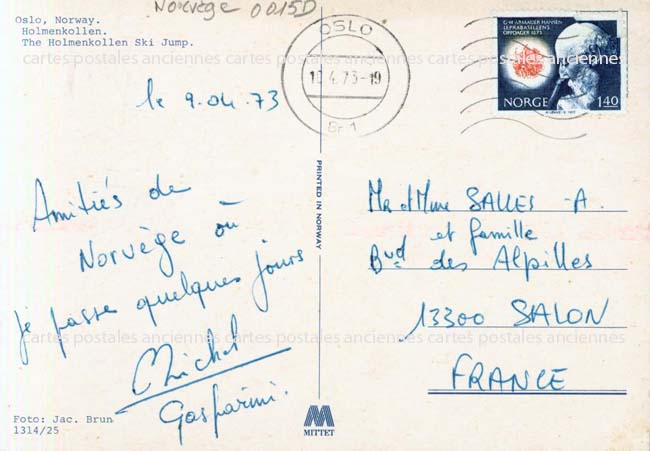 Norvège 0015D
Oslo, Norway.
Holmenkollen.
The Holmenkollen Ski Jump.
OSLO
4.73-19
Br 1
G·H·ARMAUER HANSEN
LEPRABASILLENS
OPPDAGER 1873
NORGE 140
cartes postales anciennes cartes postales anciennes cartes postales anciennes
le 9.04.73
Amitiés de
Norvège où
je passe quelques jours
Michel
Gasparini.
PRINTED IN NORWAY
Mr et Mme SALLES -A.
et famille
Bvd des Alpilles
13300 SALON
FRANCE
cartes postales anciennes cartes postales anciennes cartes postales anciennes
Foto: Jac. Brun
1314/25
MITTET